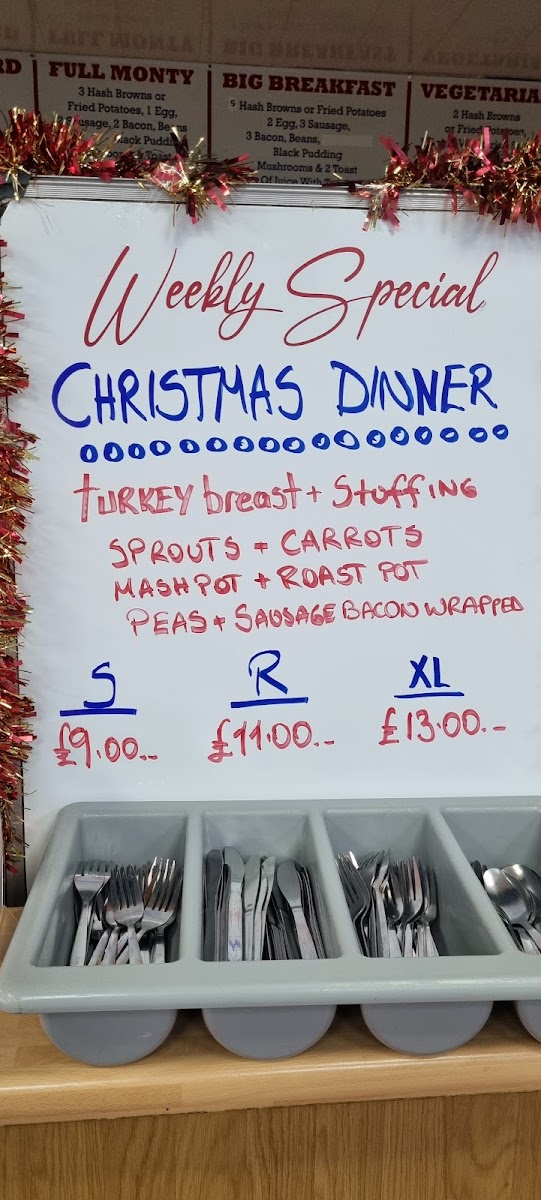 RD
FULL MONTY
3 Hash Browns or
Fried Potatoes, 1 Egg,
Sausage, 2 Bacon, Beans
Black Pudding
& Toast
BIG BREAKFAST
5 Hash Browns or Fried Potatoes
2 Egg, 3 Sausage,
3 Bacon, Beans,
Black Pudding
Mushrooms & 2 Toast
Of Juice With
VEGETARIA
2 Hash Browns
or Fried Potatoes,
Weekly Special
CHRISTMAS DINNER
TURKEY breast + Stuffing
SPROUTS + CARROTS
MASH POT + ROAST POT
PEAS + SAUSAGE BACON WRAPPED
S R XL
£9.00.- £11.00.- £13.00.-